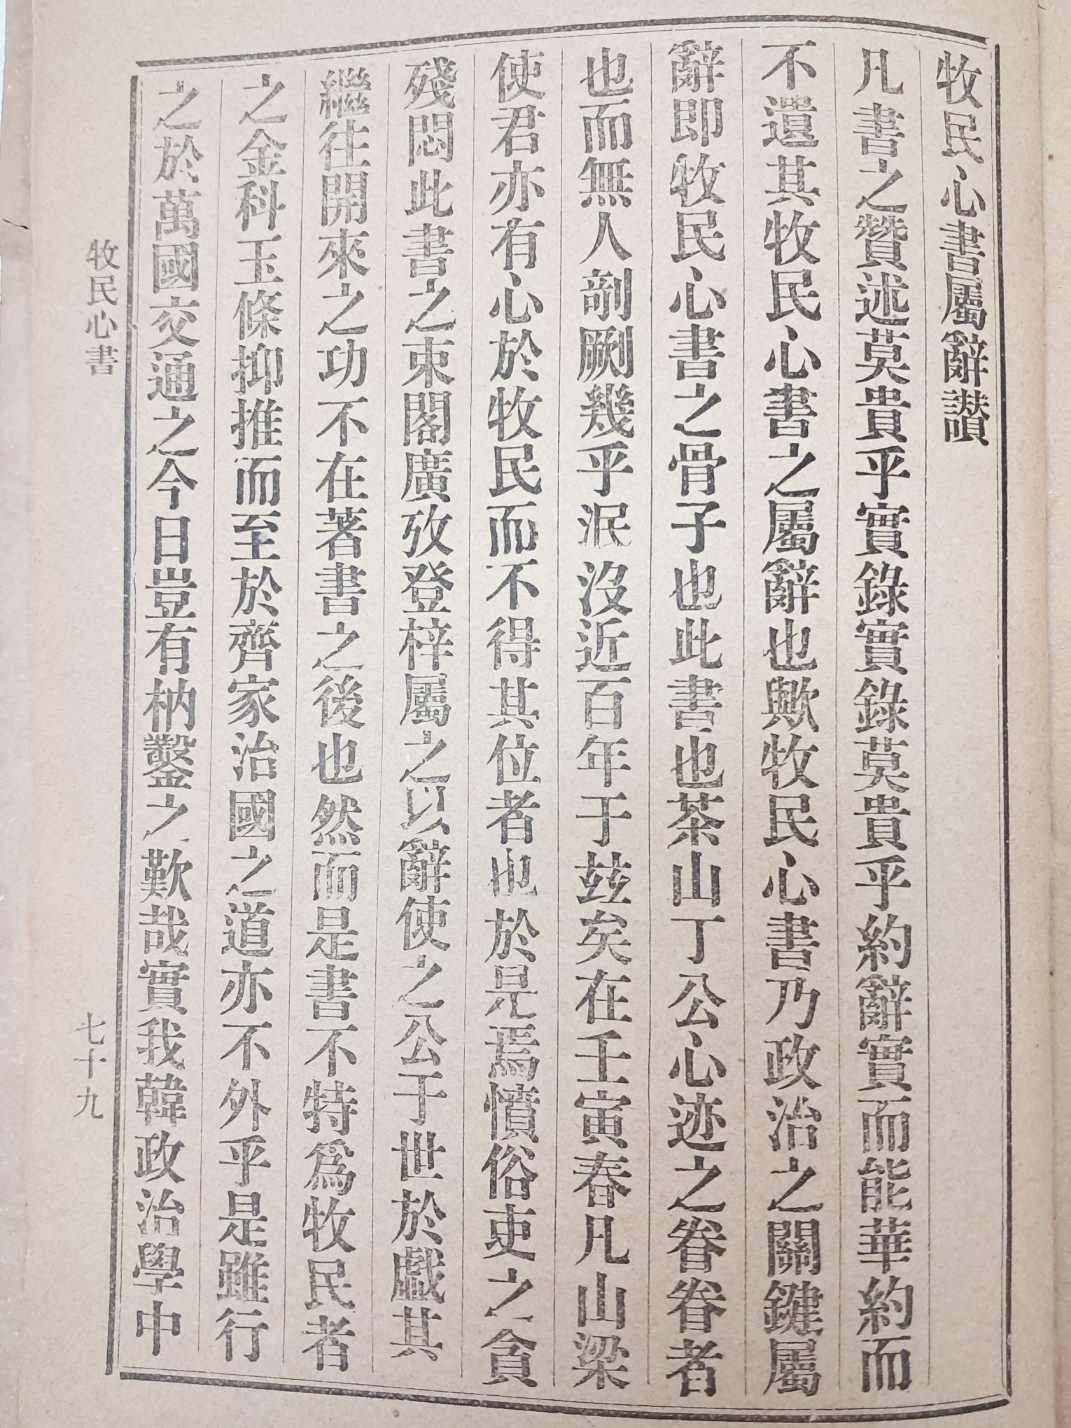 牧民心書屬辭讃
凡書之贊述莫貴乎實錄實錄莫貴乎約辭實而能華約而
不遺其牧民心書之屬辭也歟牧民心書乃政治之關鍵屬
辭即牧民心書之骨子也此書也茶山丁公心迹之眷眷者
也而無人剞劂幾乎泯沒近百年于玆矣在壬寅春凡山梁
使君亦有心於牧民而不得其位者也於是焉憤俗吏之貪
殘悶此書之束閣廣攷登梓屬之以辭使之公于世於戱其
繼往開來之功不在著書之後也然而是書不特爲牧民者
之金科玉條抑推而至於齊家治國之道亦不外乎是雖行
之於萬國交通之今日豈有枘鑿之歎哉實我韓政治學中
牧民心書
七十九